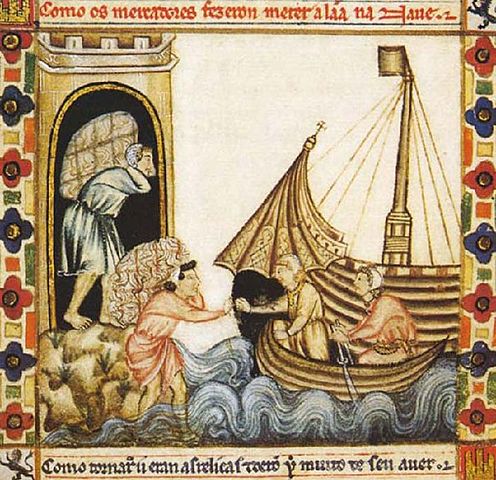 Como os mercadores fezeron meter a lãa na Naue.
Como tornarõ u eran as relicas y muito de seu auer.